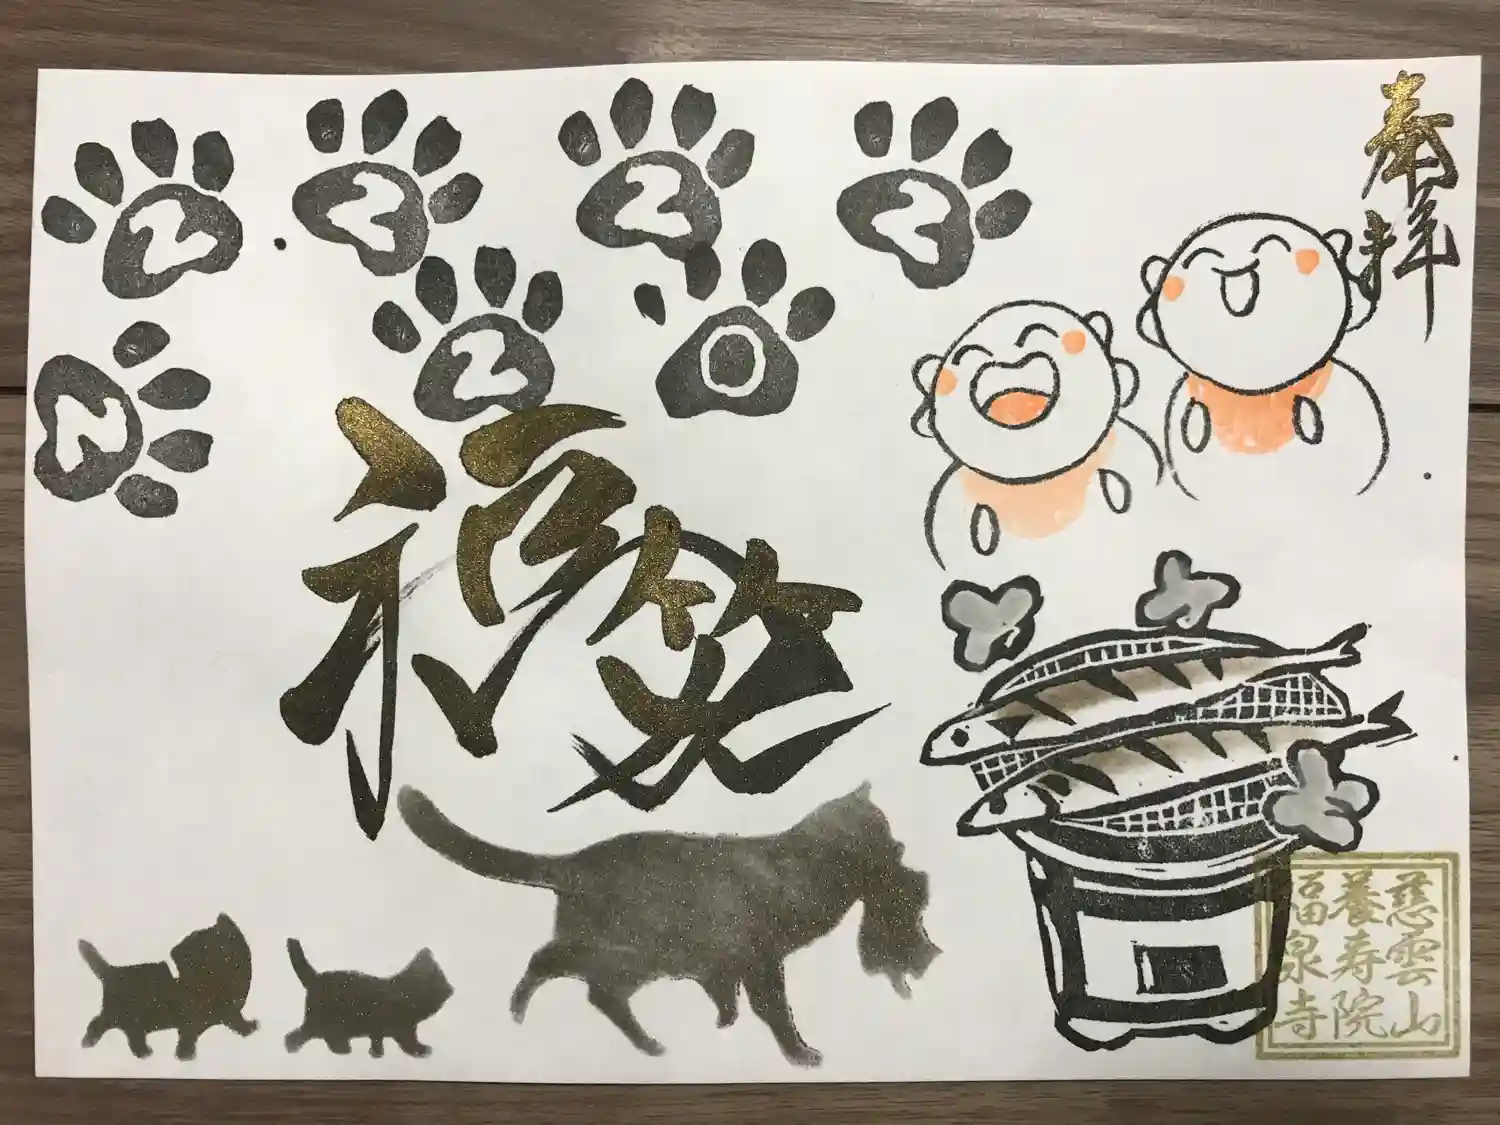 奉拝
2 0 2 2 2・2 2
福笑
慈雲山
養寿院
福泉寺